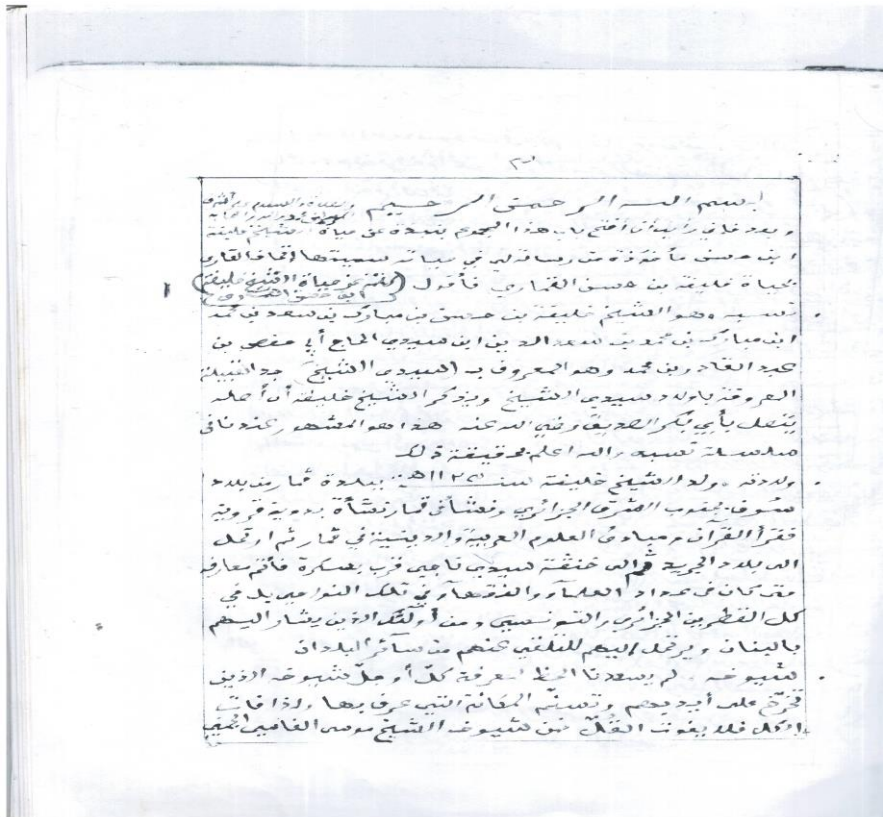 بسم الله الرحمن الرحيم والصلاة والسلام على أشرف
وبعد فإني رأيت أن أفتح باب هذا المجموع بنبذة عن حياة الشيخ خليفة
ابن حسن مأخوذة من رسالة لي في حياته سميتها إتحاف القارى
بحياة خليفة بن حسن القماري فأقول (كلمة عن حياة الشيخ خليفة
ابن حسن القماري) ١
نسبه، هو الشيخ خليفة بن حسن بن مبارك بن سعد بن محمد
ابن مبارك بن محمد بن سعد الدين ابن سيدي الحاج أبي حفص بن
عبد القادر بن محمد وهو المعروف بـ (سيدي الشيخ) جد القبيلة
المعروفة بأولاد سيدي الشيخ ويذكر الشيخ خليفة أن أصله
يتصل بأبي بكر الصديق رضي الله عنه هذا هو المشهور عندنا في
سلسلة نسبه والله أعلم بحقيقة ذلك
ولادته، ولد الشيخ خليفة سنة ببلدة قمار من بلاد
سوف بجنوب الشرق الجزائري ونشأ في قمار نشأة بدوية قروية
فقرأ القرآن ومبادئ العلوم العربية والدينية في قمار ثم ارتحل
الى بلاد الجريد ثم الى خنقة سيدي ناجي قرب بسكرة فأتم معارفه
حتى كان في عداد العلماء والفقهاء في تلك النواحي بل في
كل القطرين الجزائري والتونسي ومن أولئك الذين يشار اليهم
بالبنان ويرتحل اليهم للتلقي عنهم من سائر البلدان
شيوخه. لم يسعدنا الحظ لمعرفة كل أو جل شيوخه الذين
تخرج على أيديهم وتسنم المكانة التي عرف بها ولذا فات
الكل فلا يفوت القل فمن شيوخه الشيخ موسى